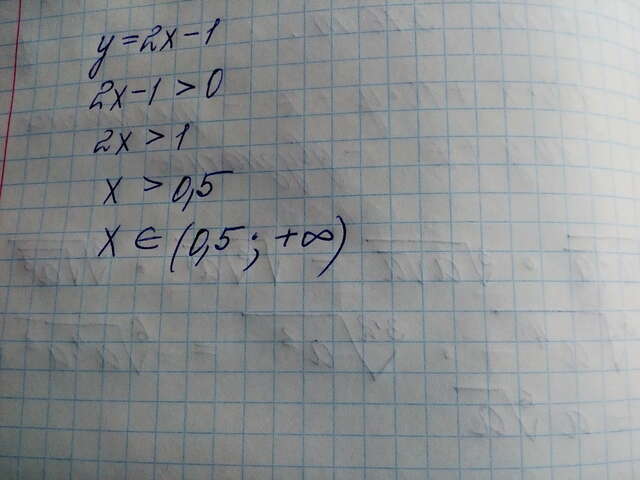 y=2x-1
2x-1>0
2x>1
x>0,5
x∈(0,5;+∞)